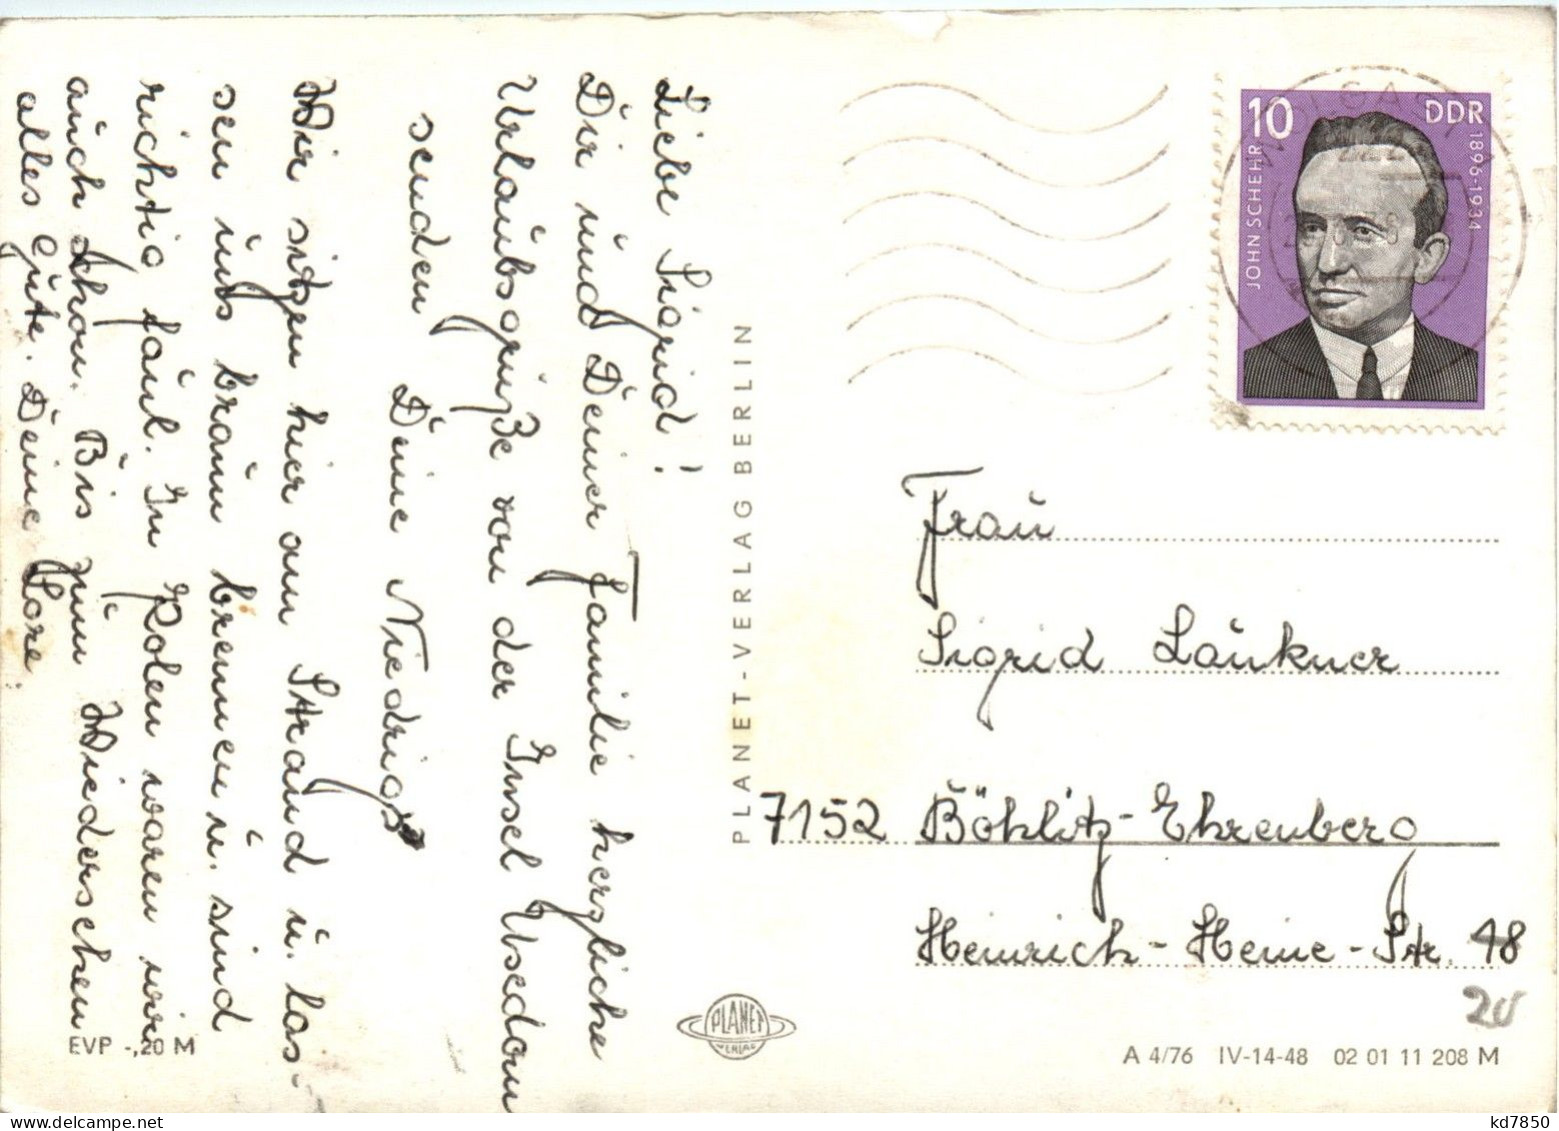 Liebe Sigrid!
Dir und Deiner Familie herzliche
Urlaubsgrüße von der Insel Usedom
senden Deine Niedrigs
Wir sitzen hier am Strand u. las-
sen uns braun brennen u. sind
richtig faul. In Polen waren wir
auch schon. Bis zum Wiedersehen
alles Gute. Deine Lore.
EVP -,20 M
PLANET-VERLAG BERLIN
PLANET
VERLAG
10
DDR
JOHN SCHEHR
1896-1934
WOLGAST
Frau
Sigrid Laukner
7152 Böhlitz-Ehrenberg
Heinrich-Heine-Str. 48
20
A 4/76 IV-14-48 02 01 11 208 M
www.delcampe.net
kd7850